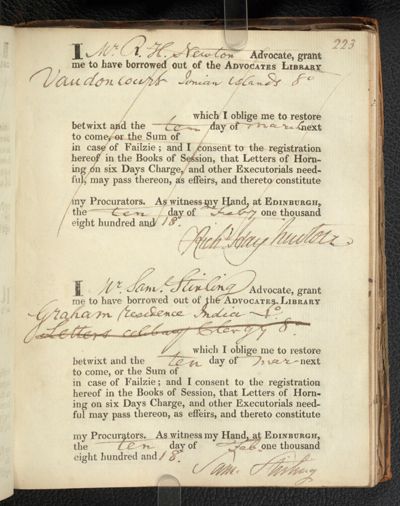 223
I Mr. R. H. Newton Advocate, grant
me to have borrowed out of the ADVOCATES LIBRARY
Vaudoncourt Ionian islands 8o
which I oblige me to restore
betwixt and the ten day of march next
to come, or the Sum of
in case of Failzie; and I consent to the registration
hereof in the Books of Session, that Letters of Horn-
ing on six Days Charge, and other Executorials need-
ful, may pass thereon, as effeirs, and thereto constitute
my Procurators. As witness my Hand, at EDINBURGH,
the ten day of Feby one thousand
eight hundred and 18.
Richd. Hay Newton
I Mr. Saml. Stirling Advocate, grant
me to have borrowed out of the ADVOCATES LIBRARY
Graham residence India 8o.
Letters Clergy 8o
which I oblige me to restore
betwixt and the ten day of mar next
to come, or the Sum of
in case of Failzie; and I consent to the registration
hereof in the Books of Session, that Letters of Horn-
ing on six Days Charge, and other Executorials need-
ful may pass thereon, as effeirs, and thereto constitute
my Procurators. As witness my Hand, at EDINBURGH,
the ten day of Feb one thousand
eight hundred and 18.
Saml. Stirling